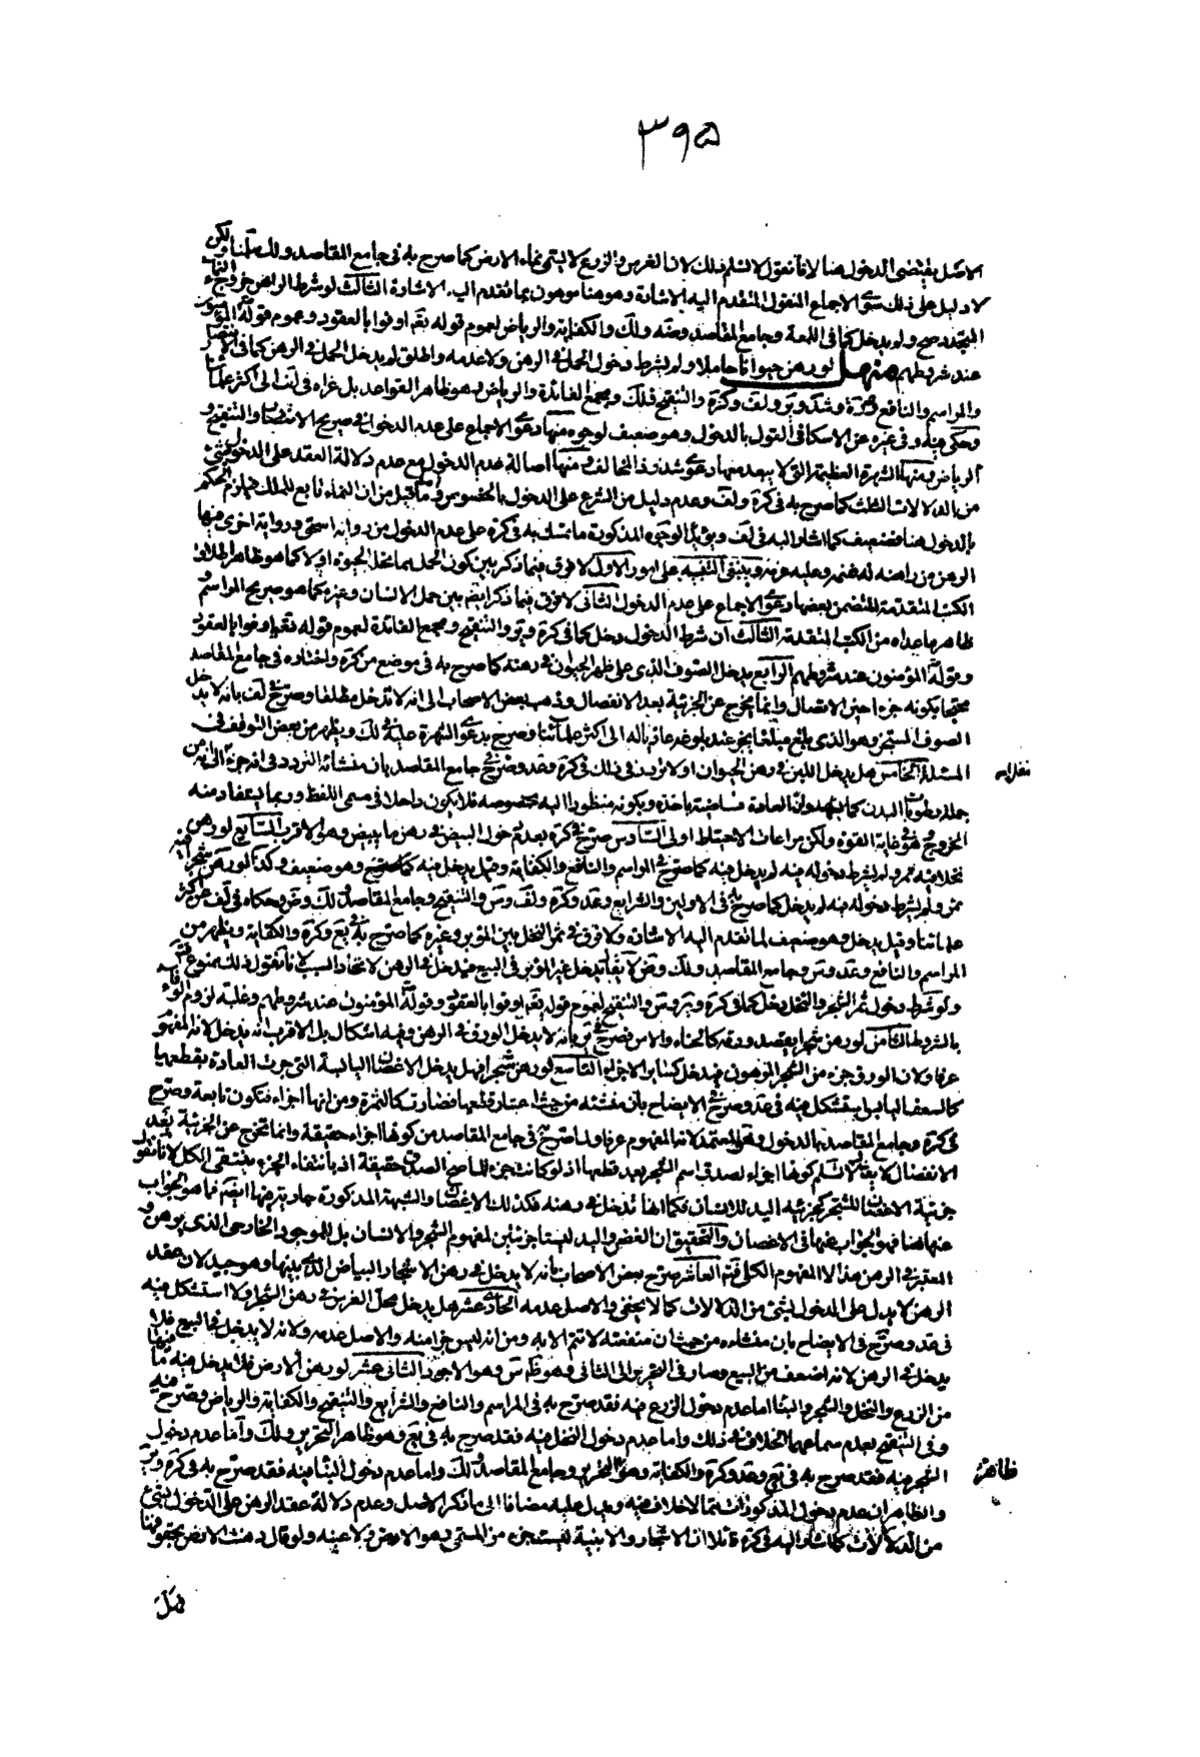 ٣٩٥
الاصل يقتضى الدخول هنا لانا نقول لا نسلم ذلك لان الغرس والزرع لا يسمى نماء الارض كما صرح به فى جامع المقاصد ولك سلمنا ولكن
لا دليل على ذلك سوى الاجماع المنقول المتقدم اليه الاشارة وهو هنا موهون بما تقدم اليه الاشارة الثالث لو شرط الراهن خروج النماء
المتجدد صح ولم يدخل كما فى اللمعة وجامع المقاصد وضه ولك والكفاية والرياض لعموم قوله تعالى اوفوا بالعقود وعموم قوله المؤمنون
عند شروطهم منهل لو رهن حيوانا حاملا ولم يشترط دخول الحمل فى الرهن ولا عدمه واطلق لم يدخل الحمل فى الرهن كما فى الانتصار
والمراسم والنافع وعد وير ولف وكرة والتنقيح ولك ومجمع الفائدة والرياض وهو ظاهر القواعد بل عزاه فى لف الى اكثر علمائنا
وحكى فيه وفى غيره عن الاسكافى القول بالدخول وهو ضعيف لوجوه منها دعوى الاجماع على عدم الدخول فى صريح الانتصار والتنقيح
الرياض ومنها الشهرة العظيمة التى لا يبعد معها دعوى شذوذ المخالف ومنها اصالة عدم الدخول مع عدم دلالة العقد على الدخول بشئ
من الدلالات الثلث كما صرح به فى كرة ولف وعدم دليل من الشرع على الدخول بالخصوص وما قيل من ان النماء تابع للملك فيلزم الحكم
بالدخول هنا فضعيف كما اشار اليه فى لف ويؤيد الوجوه المذكورة ما تمسك به فى كرة على عدم الدخول من رواية اسحق ورواية اخرى فيها
الرهن وزيادته له غنمه وعليه غرمه وينبغى التنبيه على امور الاول لا فرق فيما ذكر بين كون الحمل مما تحله الحيوة او لا كما هو ظاهر اطلاق
الكتب المتقدمة المتضمن بعضها دعوى الاجماع على عدم الدخول الثانى لا فرق فيما ذكر ايضا بين حمل الانسان وغيره كما هو صريح المراسم و
ظاهر ما عداه من الكتب المتقدمة الثالث ان شرط الدخول دخل كما فى كرة وير والتنقيح ومجمع الفائدة لعموم قوله تعالى اوفوا بالعقود
وقوله المؤمنون عند شروطهم الرابع يدخل الصوف الذى على ظهر الحيوان فى رهنه كما صرح به فى موضع من كرة واختاره فى جامع المقاصد
محتجا بكونه جزءا حين الاتصال وانما يخرج عن الجزئية بعد الانفصال وذهب بعض الاصحاب الى انه لا تدخل مطلقا وصرح فى لف بانه لا يدخل
الصوف المستجز وهو الذى بلغ مبلغا يجز عند بلوغه عازياله الى اكثر علمائنا وصرح بدعوى الشهرة عليه فى لك ويظهر من بعض التوقف فى
المسئلة الخامس هل يدخل اللبن فى رهن الحيوان او لا تردد فى ذلك فى كرة وعد وصرح فى جامع المقاصد بان منشأه التردد فى انه جزء الى انه من
جملة رطوبات البدن كما يشهد له ان العادة قاضية باخذه ويكونه منظورا اليه بخصوصه فلا يكون داخلا فى مسمى اللفظ وربما يستفاد منه
الخروج فى غاية القوة ولكن مراعات الاحتياط اولى السادس صرح فى كرة بعدم دخول البيض فى رهن ما يبيض وهو الاقرب السابع لو رهن
نخلا فيه ثمر ولم يشرط دخوله فيه لم يدخل فيه كما صرح فى المراسم والنافع والكفاية وقيل يدخل فيه وهو ضعيف وكذا لو رهن شجرا فيه
ثمر ولم يشرط دخوله فيه لم يدخل كما صرح به فى الاولين والشرايع وعد وكرة ولف وس والتنقيح وجامع المقاصد ولك وضه وحكاه فى لف عن اكثر
علمائنا وقيل يدخل وهو ضعيف لما تقدم اليه الاشارة ولا فرق فى ثمر النخل بين المؤبر وغيره كما صرح به فى يع وكرة والكفاية ويظهر من
المراسم والنافع وعد وس وجامع المقاصد ولك وضه لا يقال يدخل غير المؤبر فى البيع فيدخل فى الرهن لاتحاد السبب لانا نقول ذلك ممنوع
ولو شرط دخول ثمر الشجر والنخل دخل كما فى كرة وير وس والتنقيح لعموم قوله تعالى اوفوا بالعقود وقوله المؤمنون عند شروطهم وغلبة لزوم الوفاء
بالشروط الثامن لو رهن شجرا يقصد ورقه كالحناء والاس فصرح فى ير بانه لا يدخل الورق فى الرهن وفيه اشكال بل الاقرب انه يدخل لانه المفهوم
عرفا ولان الورق جزء من الشجر المرهون فيدخل كسائر الاجزاء التاسع لو رهن شجرا فهل يدخل الاغصان اليابسة التى جرت العادة بقطعها
كالسعف اليابس استشكل فيه فى عد وصرح فى الايضاح بان منشئه من حيث اعتبار قطعها فصارت كالثمرة ومن انها اجزاء فتكون تابعة وصرح
فى كرة وجامع المقاصد بالدخول وهو المعتمد لانه المفهوم عرفا ولما صرح فى جامع المقاصد من كونها اجزاء حقيقة وانما تخرج عن الجزئية بعد
الانفصال لا يقال لا نسلم كونها اجزاء لصدق اسم الشجر بعد قطعها اذ لو كانت جزءا لما صح الصدق حقيقة اذ بانتفاء الجزء ينتفى الكل لانا نقول
جزئية الاغصان للشجر كجزئية اليد للانسان فكما انها تدخل فى رهنه فكذلك الاغصان والشبهة المذكورة جارية فيها ايضا فما هو الجواب
عنها هنا فهو الجواب عنها فى الاغصان والتحقيق ان الغصن واليد ليسا جزئين لمفهوم الشجر والانسان بل للموجود الخارجى الذى هو رهن و
المعتبر فى الرهن هذا لا المفهوم الكلى فتم العاشر صرح بعض الاصحاب بانه لا يدخل فى رهن الاشجار البياض الذى بينها وهو جيد لان عقد
الرهن لا يدل على الدخول بشئ من الدلالات كما لا يخفى والاصل عدمه الحادى عشر هل يدخل محل الغرس فى رهن الشجر او لا استشكل فيه
فى عد وصرح فى الايضاح بان منشاءه من حيث ان منفعته لا تتم الا به ومن انه ليس جزءا منه والاصل عدمه ولانه لا يدخل فى البيع فلا
يدخل فى الرهن لانه اضعف من البيع وصار فى التحرير الى الثانى وهو ظاهر س وهو الاجود الثانى عشر لو رهن الارض فلا يدخل فيه ما فيها
من الزرع والنخل والشجر والبناء اما عدم دخول الزرع فيه فقد صرح به فى المراسم والنافع والشرايع والتنقيح والكفاية والرياض وصرح فيه
وفى التنقيح بعدم سماعهما الخلاف فى ذلك واما عدم دخول النخل فيه فقد صرح به فى يع وهو ظاهر التحرير ولك واما عدم دخول
الشجر فيه فقد صرح به فى يع وعد وكرة والكفاية وهو ظاهر التحرير وجامع المقاصد ولك واما عدم دخول البناء فيه فقد صرح به فى كرة وير
والظاهر ان عدم دخول المذكورات مما لا خلاف فيه ويدل عليه مضافا الى ما ذكر الاصل وعدم دلالة عقد الرهن على الدخول بشئ
من الدلالات كما اشار اليه فى كرة قائلا ان الاشجار والابنية ليست جزء من المسمى وهو الارض ولا عينه ولو قال رهنت الارض بحقوقها
ظاهر